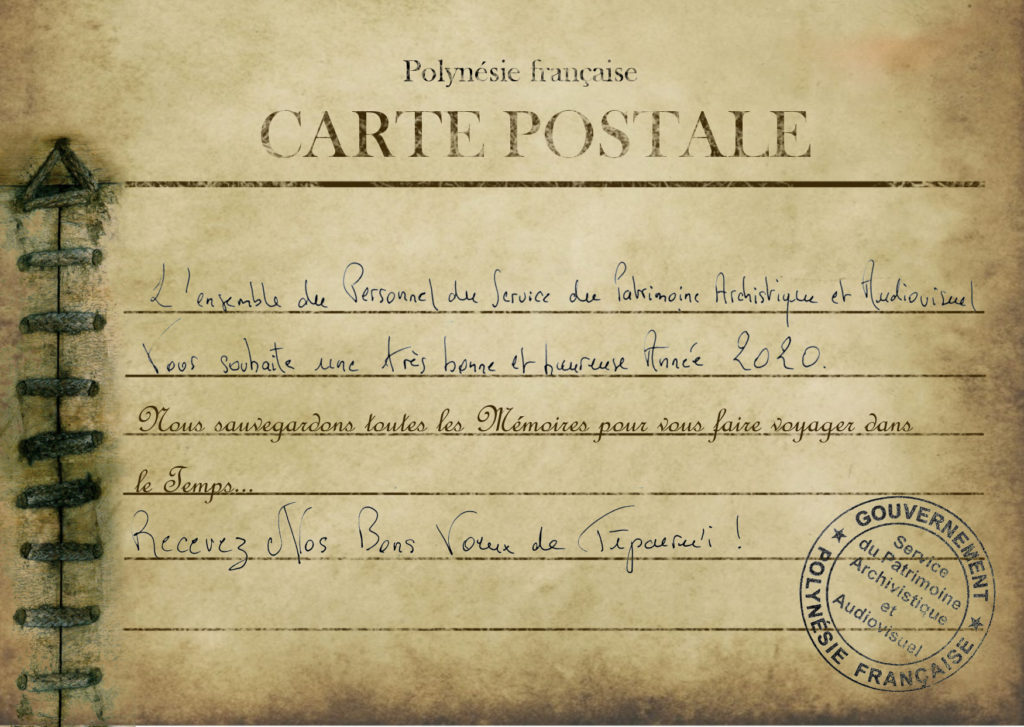 Polynésie française
CARTE POSTALE
L'ensemble du Personnel du Service du Patrimoine Archistique et Audiovisuel
Vous souhaite une très bonne et heureuse Année 2020.
Nous sauvegardons toutes les Mémoires pour vous faire voyager dans
le Temps...
Recevez Nos Bons Vœux de !
GOUVERNEMENT
Service
du Patrimoine
Archivistique
et
Audiovisuel
POLYNÉSIE FRANÇAISE